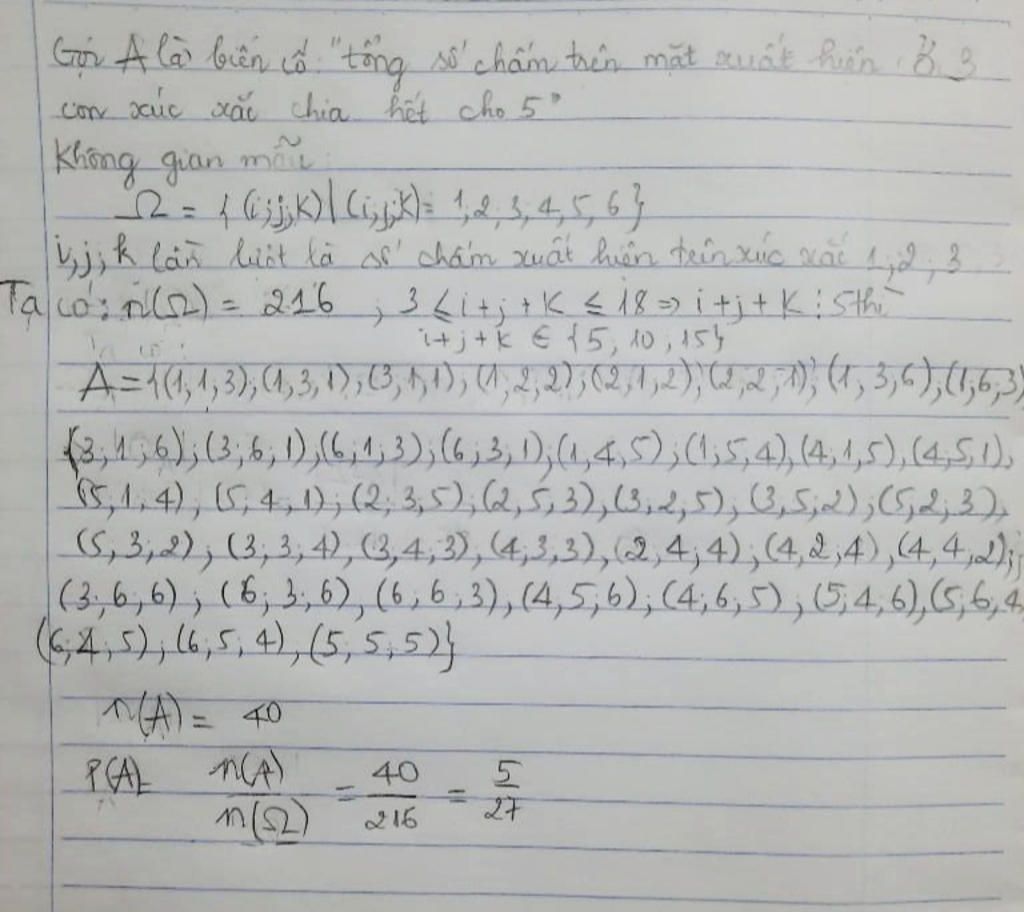 Gọi A là biến cố "tổng số chấm trên mặt xuất hiện ở 3
con xúc xắc chia hết cho 5"
Không gian mẫu:
Ω = {(i;j;k) | (i;j;k) = 1,2,3,4,5,6}
i,j,k lần lượt là số chấm xuất hiện trên xúc xắc 1,2,3
Ta có: n(Ω) = 216 , 3 ≤ i+j+k ≤ 18 => i+j+k ⋮ 5 thì
i+j+k ∈ {5, 10, 15}
A = {(1;1;3);(1;3;1);(3;1;1);(1;2;2);(2;1;2);(2;2;1);(1;3;6);(1;6;3)
(3;1;6);(3;6;1);(6;1;3);(6;3;1);(1;4;5);(1;5;4),(4;1;5),(4;5;1),
(5,1,4), (5;4;1);(2;3;5);(2,5,3),(3,2,5);(3,5;2);(5;2;3),
(5,3;2); (3;3;4),(3,4;3),(4;3;3),(2,4;4);(4,2;4),(4,4,2);
(3;6;6); (6;3;6),(6;6;3),(4,5;6);(4;6;5);(5;4,6),(5;6,4
(6;4;5);(6;5;4),(5;5;5)}
n(A) = 40
P(A) = n(A)/n(Ω) = 40/216 = 5/27